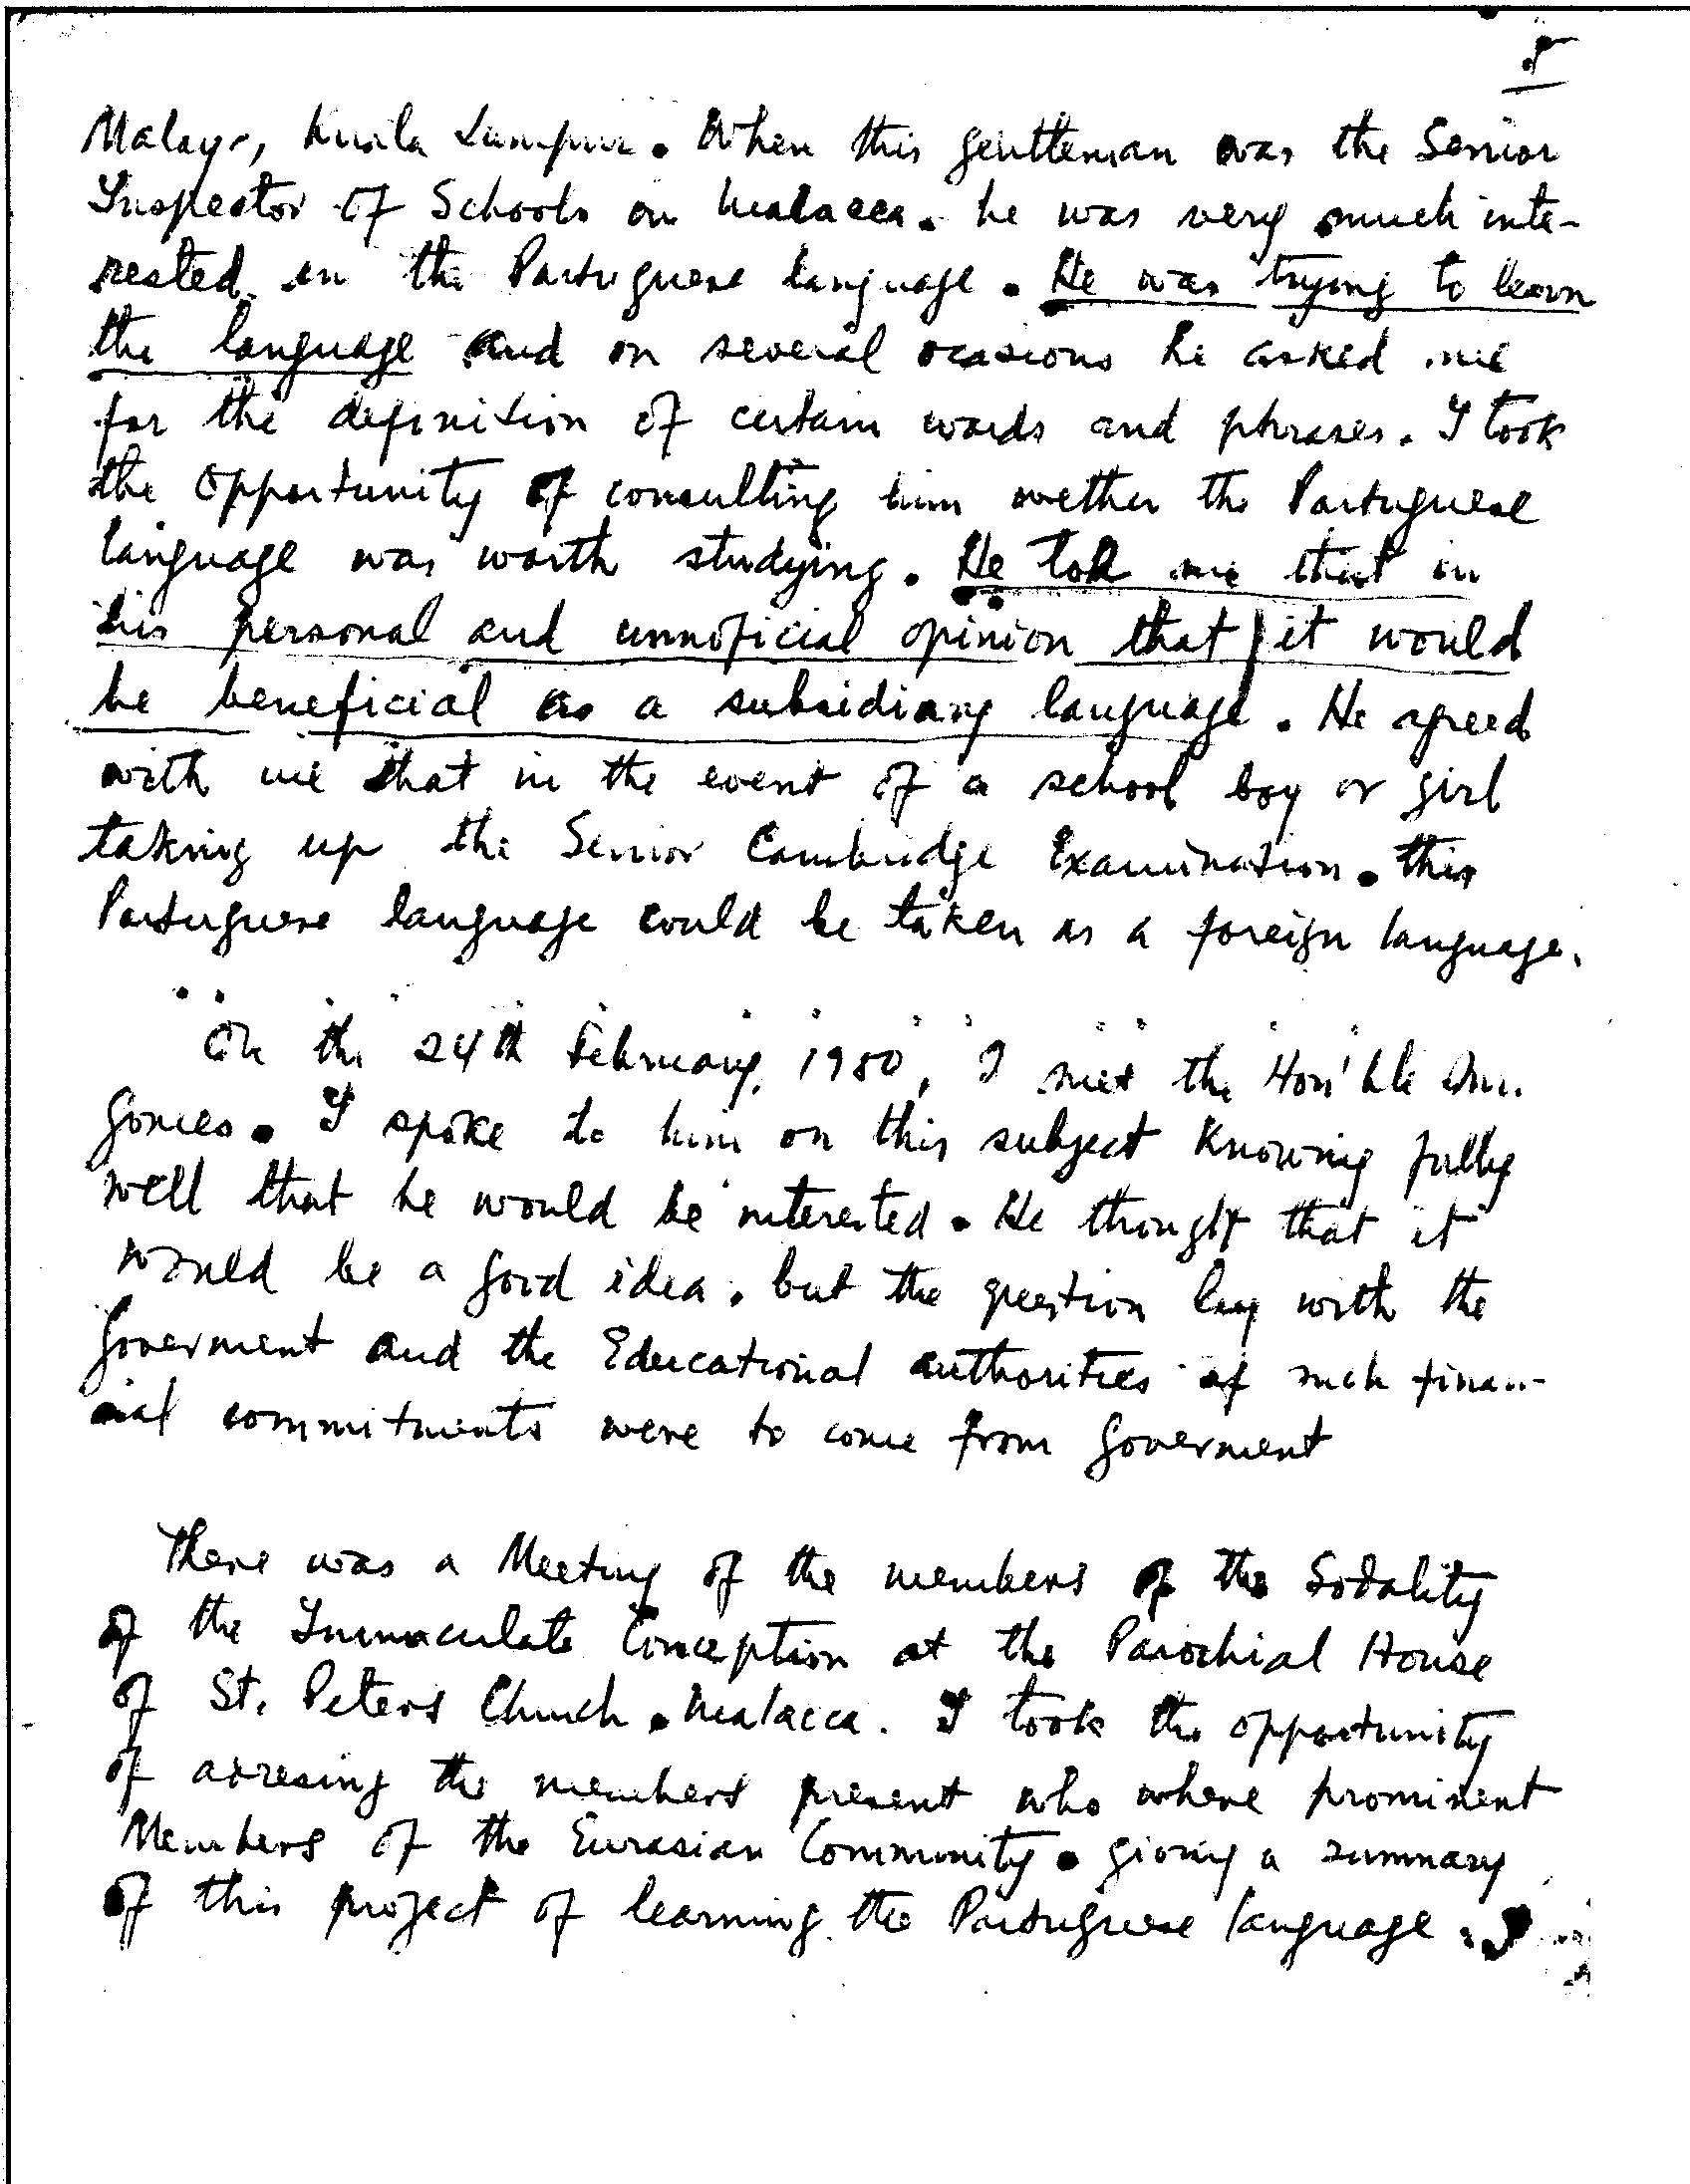 5
Malaya, Kuala Lumpur. When this gentleman was the Senior
Inspector of Schools on Malacca. he was very much inte-
rested in the Portuguese language. He was trying to learn
the language and on several ocasions he asked me
for the definition of certain words and phrases. I took
the opportunity of consulting him wether the Portuguese
language was worth studying. He told me that in
his personal and unnoficial opinion that it would
be beneficial as a subsidiary language. He agreed
with me that in the event of a school boy or girl
taking up the Senior Cambridge Examination. this
Portuguese language could be taken as a foreign language.
On the 24th February, 1950, I met the Hon'ble
Gomes. I spoke to him on this subject knowing fully
well that he would be interested. He thought that it
would be a good idea. but the question lay with the
Goverment and the Educational authorities if such finan-
cial commitments were to come from Goverment
There was a Meeting of the members of the Sodality
of the Immaculate Conception at the Parochial House
of St. Peters Church. Malacca. I took the opportunity
of adresing the members present who where prominent
Members of the Eurasian Community. giving a summary
of this project of learning the Portuguese language. I